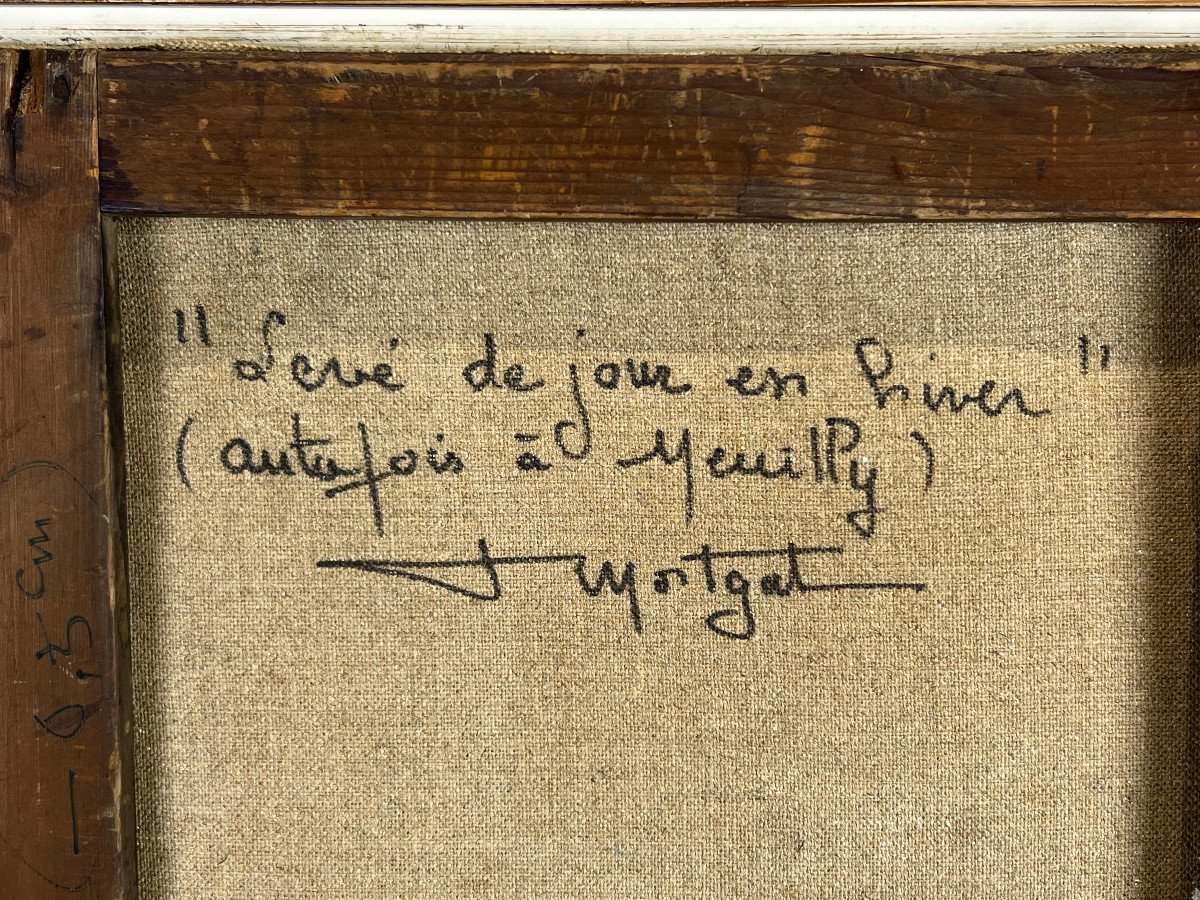 " Levé de jour en hiver "
(autrefois à Neuilly)
J Mortgat
( — 8,5 cm )